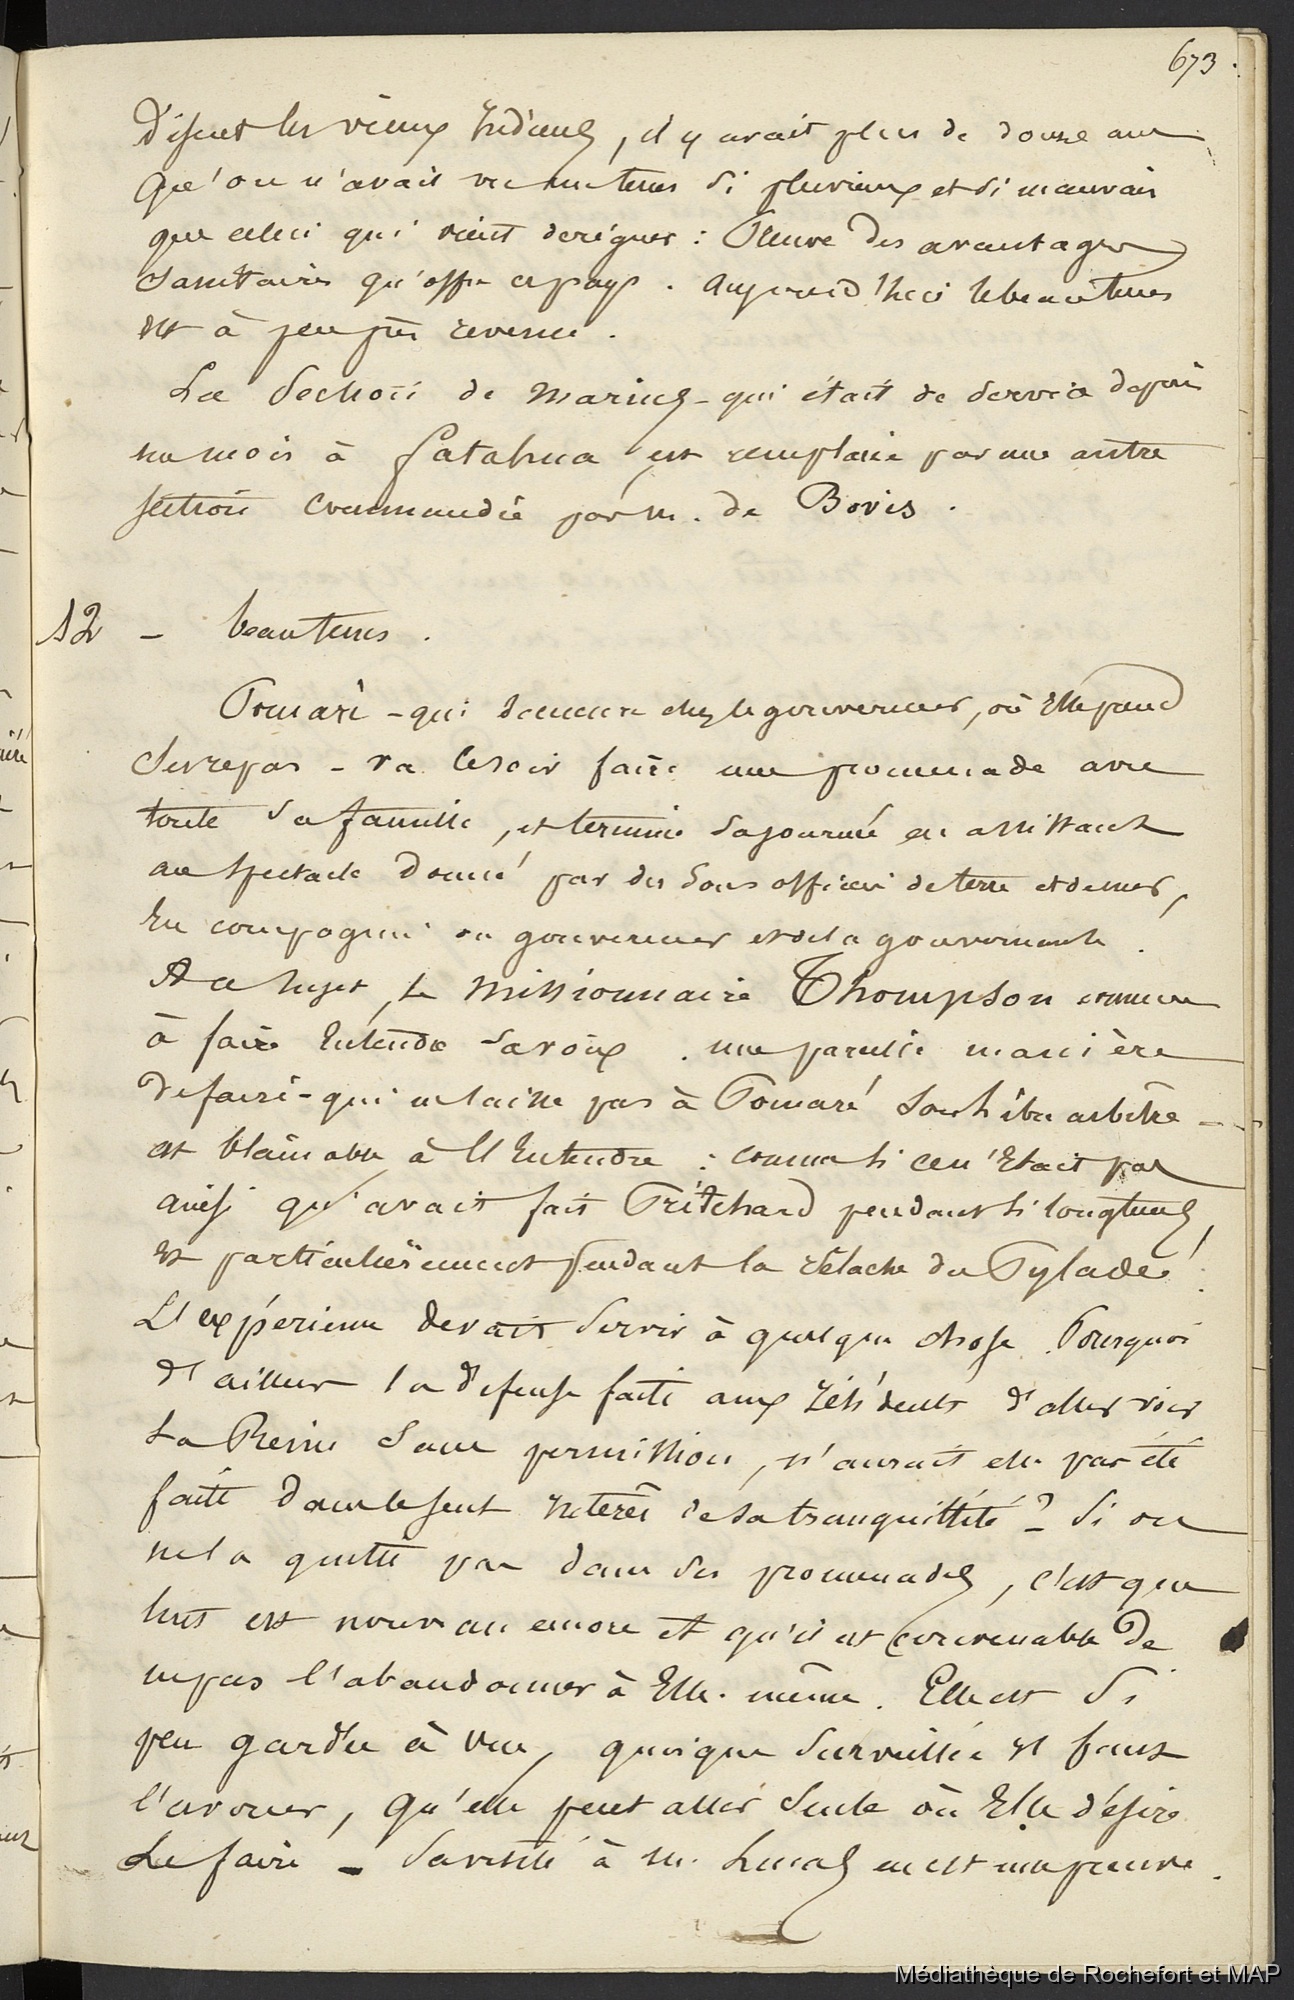 673.
Disent les vieux Indiens, il y avait plus de douze ans
qu'on n'avait vu un tems si pluvieux et si mauvais
que celui qui vient de régner : Preuve des avantages
sanitaires qu'offre ce pays. Aujourd'hui le beau tems
est à peu près revenu.
La Section de Marins - qui était de service depuis
un mois à Fatahua est remplacée par une autre
section commandée par M. de Bovis.
12 - beau tems.
Pomaré - qui demeure chez le gouverneur, où Elle prend
ses repas - va le soir faire une promenade avec
toute sa famille, et termine sa journée en assistant
au spectacle donné par des sous officiers de terre et de mer,
En compagnie du gouverneur et de la gouvernante.
A ce sujet, le Missionnaire Thompson commence
à faire Entendre sa voix. une pareille manière
de faire - qui ne laisse pas à Pomaré son libre arbitre -
est blamable à l'Entendre : comme si ce n'Etait pas
ainsi qu'avait fait Pritchard pendant si longtems,
et particulièrement pendant la relâche du Pylade !
L'expérience devait servir à quelque chose. Pourquoi
d'ailleurs la défense faite aux résidents d'aller voir
La Reine sans permission, n'aurait elle pas été
faite dans le seul intérêt de sa tranquillité ? - Si on
ne la quitte pas dans ses promenades, c'est que
tout est nouveau encore et qu'il est convenable de
ne pas l'abandonner à Elle-même. Elle est si
peu gardée à vue, quoique surveillée il faut
l'avouer, qu'elle peut aller seule où Elle désire
Le faire - Sa visite à M. Lucas en est une preuve.
Médiathèque de Rochefort et MAP